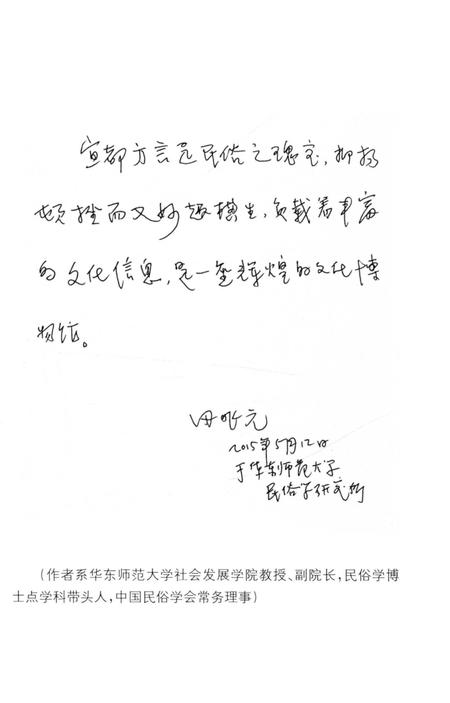 宜都方言是民俗之瑰宝，抑扬
顿挫而又妙趣横生，负载着丰富
的文化信息，是一座辉煌的文化博
物馆。
田兆元
2015年5月12日
于华东师范大学
民俗学研究所
（作者系华东师范大学社会发展学院教授、副院长，民俗学博
士点学科带头人，中国民俗学会常务理事）